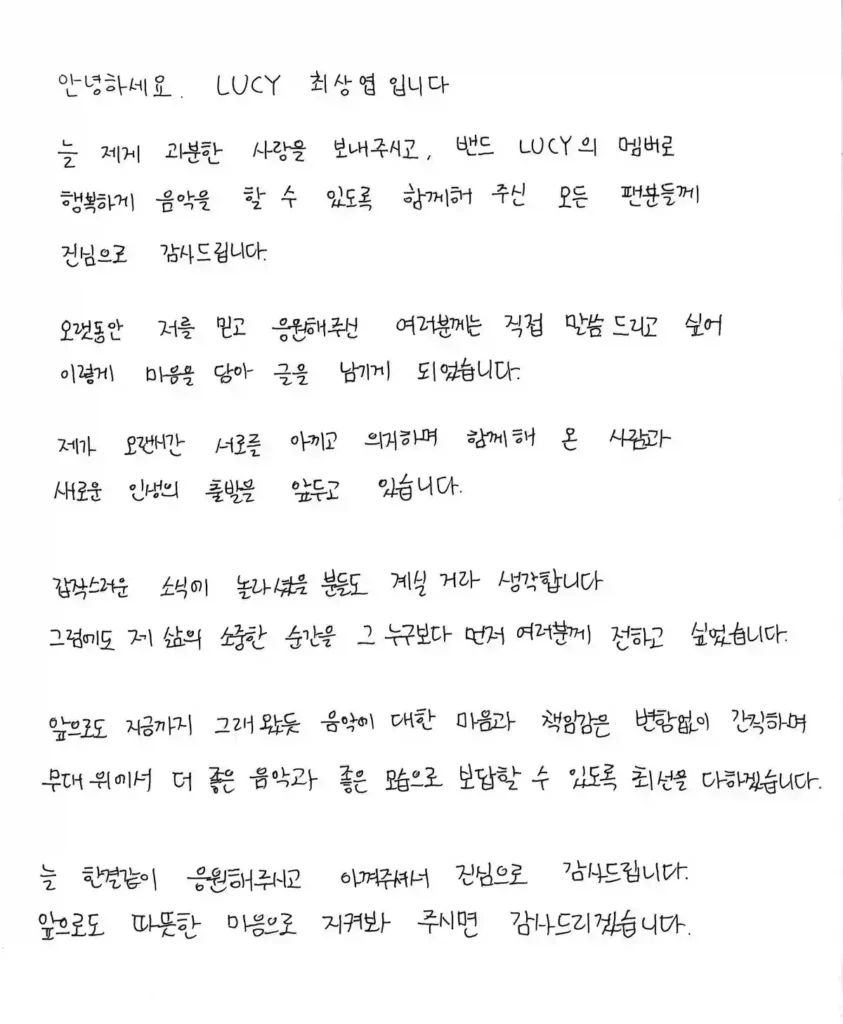 안녕하세요. LUCY 최상엽입니다
늘 제게 과분한 사랑을 보내주시고, 밴드 LUCY의 멤버로
행복하게 음악을 할 수 있도록 함께해 주신 모든 팬분들께
진심으로 감사드립니다.
오랫동안 저를 믿고 응원해주신 여러분께는 직접 말씀 드리고 싶어
이렇게 마음을 담아 글을 남기게 되었습니다.
제가 오랜시간 서로를 아끼고 의지하며 함께해 온 사람과
새로운 인생의 출발을 앞두고 있습니다.
갑작스러운 소식에 놀라셨을 분들도 계실 거라 생각합니다
그럼에도 제 삶의 소중한 순간을 그 누구보다 먼저 여러분께 전하고 싶었습니다.
앞으로도 지금까지 그래왔듯 음악에 대한 마음과 책임감은 변함없이 간직하며
무대 위에서 더 좋은 음악과 좋은 모습으로 보답할 수 있도록 최선을 다하겠습니다.
늘 한결같이 응원해주시고 아껴주셔서 진심으로 감사드립니다.
앞으로도 따뜻한 마음으로 지켜봐 주시면 감사드리겠습니다.